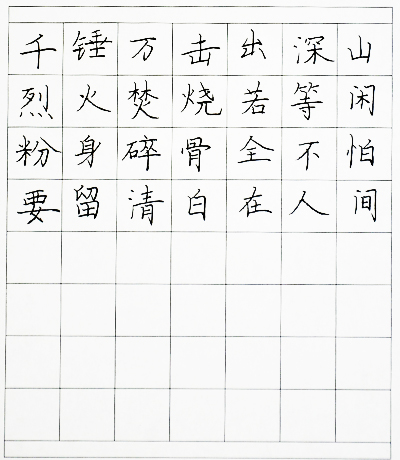 千锤万击出深山
烈火焚烧若等闲
粉身碎骨全不怕
要留清白在人间